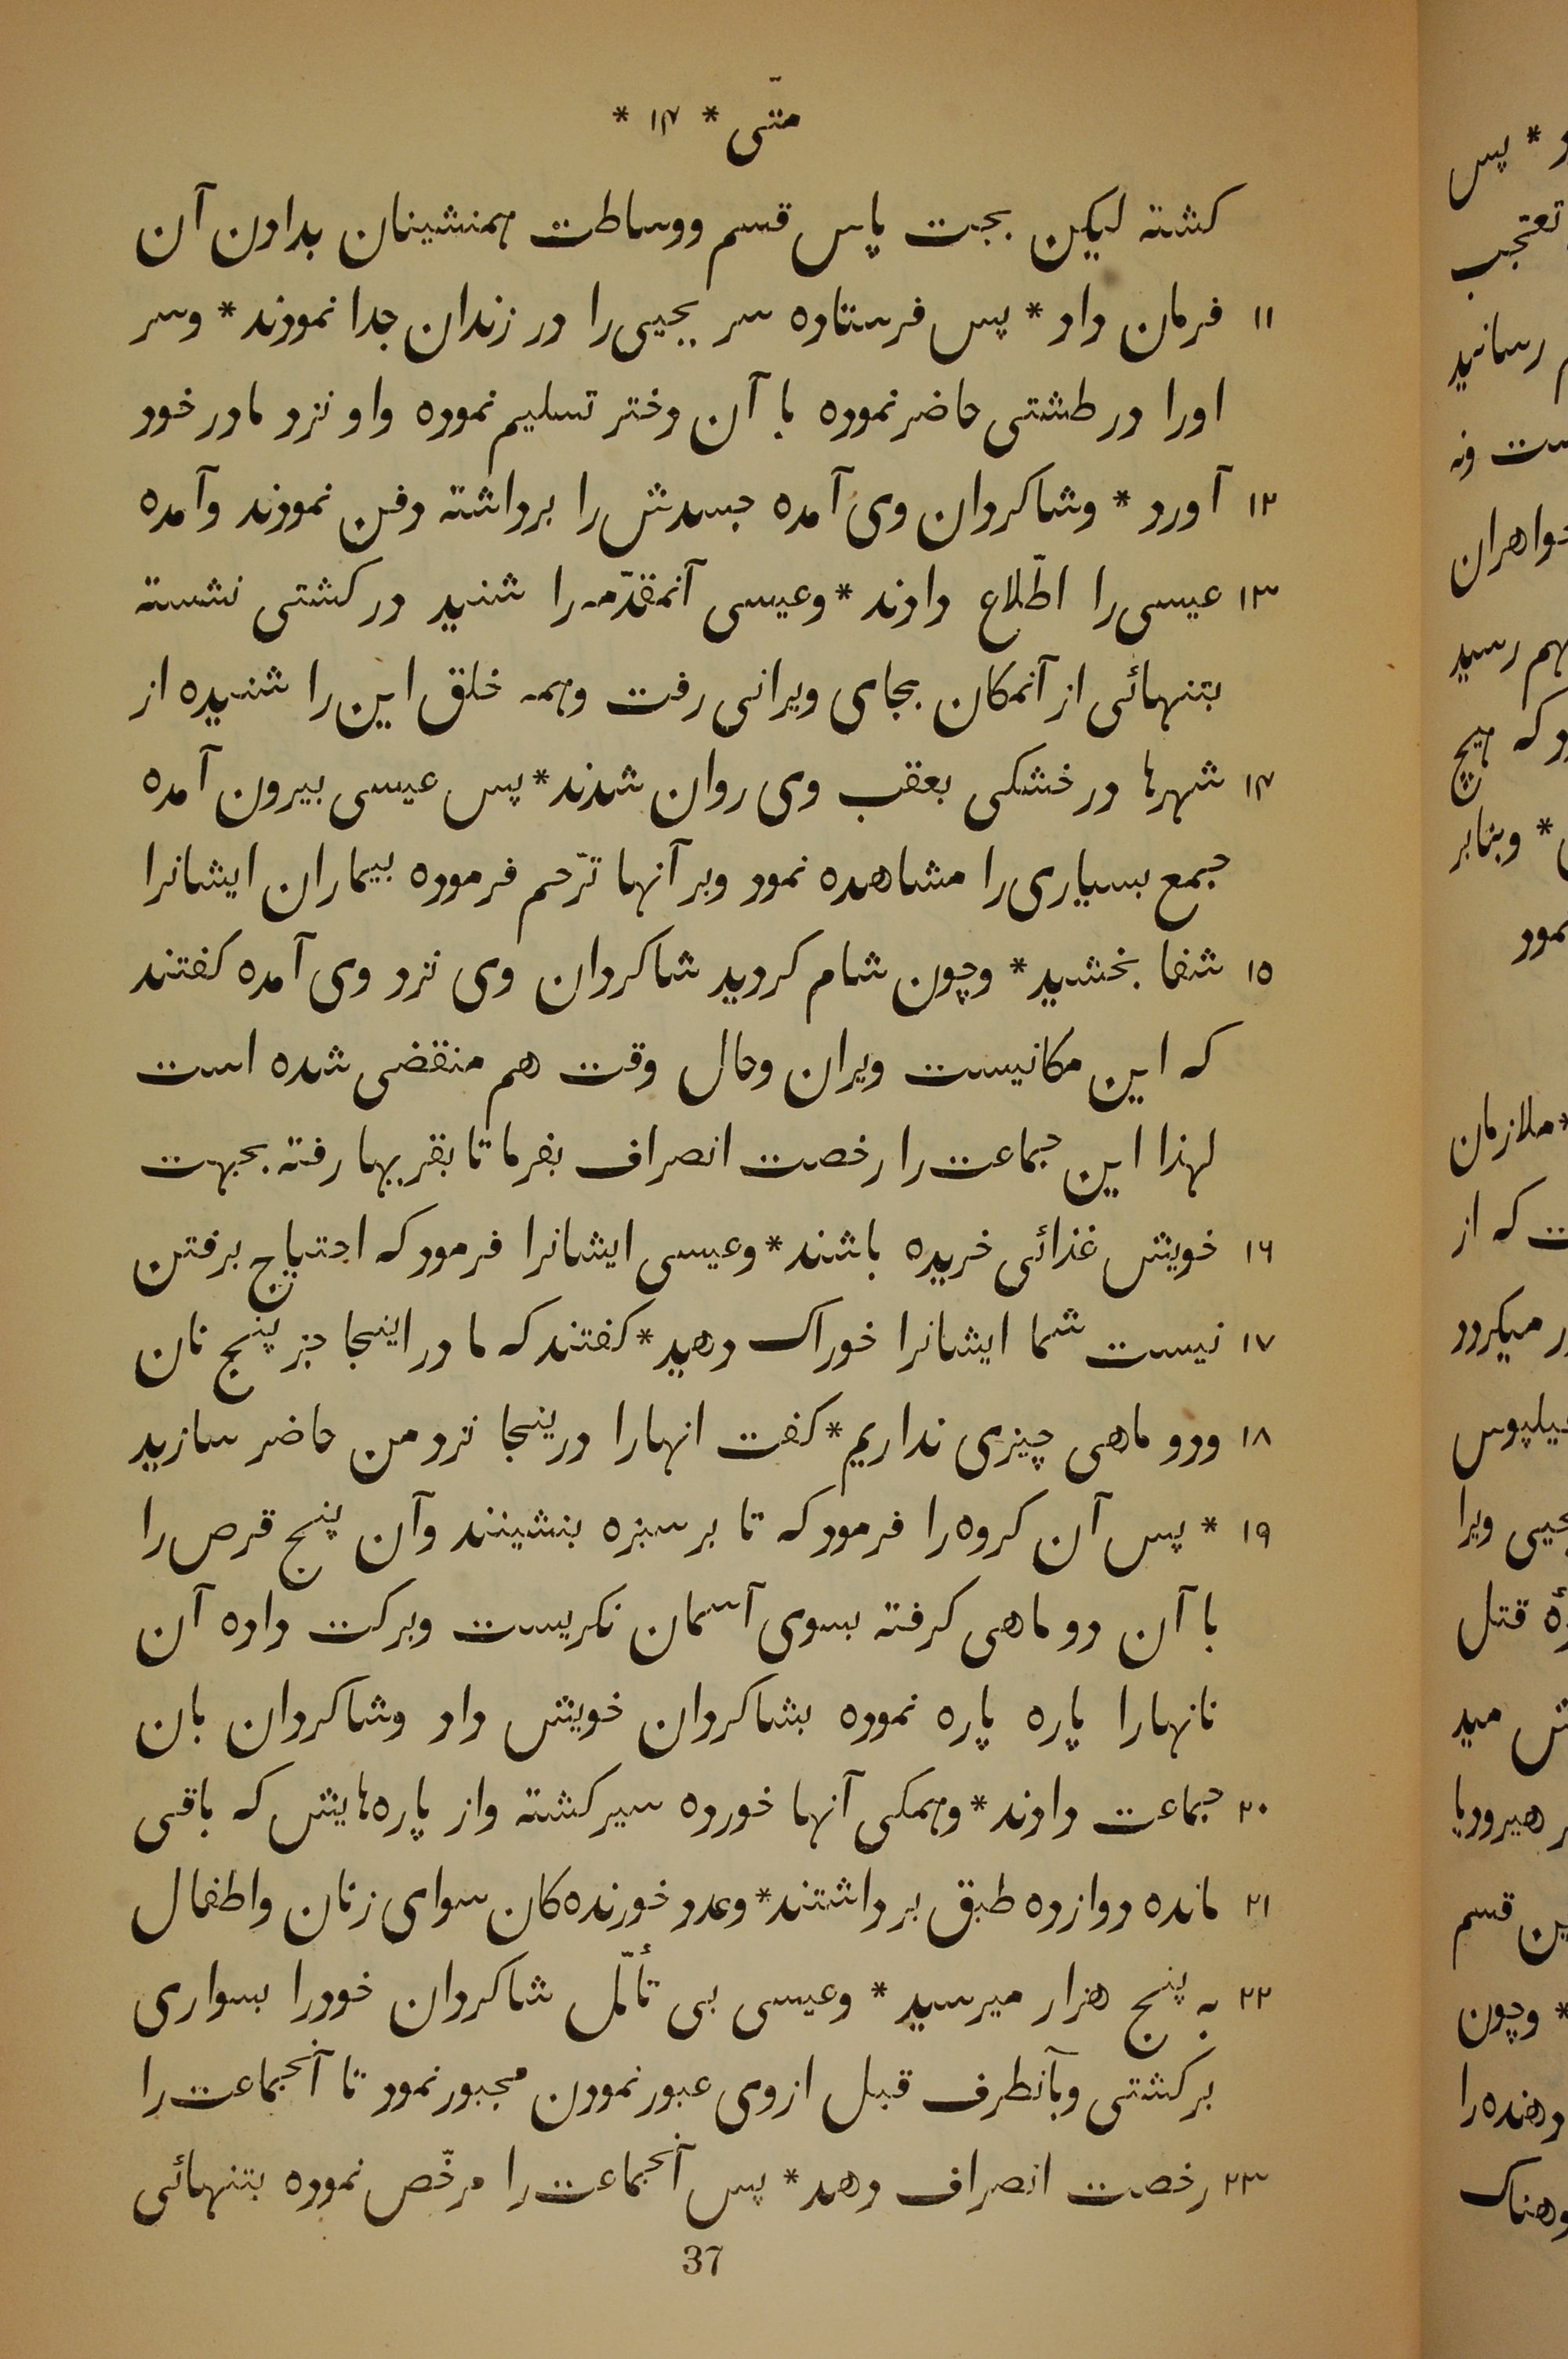 متّی * ۱۴ *
کشته لیکن بجهت پاس قسم ووساطت همنشینان بدادن آن
۱۱ فرمان داد * پس فرستاده سر یحیی را در زندان جدا نمودند * وسر
اورا در طشتی حاضر نموده با آن دختر تسلیم نموده واو نزد مادر خود
۱۲ آورد * وشاکردان وی آمده جسدش را برداشته دفن نمودند وآمده
۱۳ عیسی را اطّلاع دادند * وعیسی آنمقدّمه را شنید در کشتی نشسته
بتنهائی از آنمکان بجای ویرانی رفت وهمه خلق این را شنیده از
۱۴ شهرها در خشکی بعقب وی روان شدند * پس عیسی بیرون آمده
جمع بسیاری را مشاهده نمود وبر آنها ترّحم فرموده بیماران ایشانرا
۱۵ شفا بخشید * وچون شام کردید شاکردان وی نزد وی آمده کفتند
که این مکانیست ویران وحال وقت هم منقضی شده است
لهذا این جماعت را رخصت انصراف بفرما تا بقریها رفته بجهت
۱۶ خویش غذائی خریده باشند * وعیسی ایشانرا فرمود که احتیاج برفتن
۱۷ نیست شما ایشانرا خوراک دهید * کفتند که ما در اینجا جز پنج نان
۱۸ ودو ماهی چیزی نداریم * کفت انهارا درینجا نزد من حاضر سازید
۱۹ * پس آن کروه را فرمود که تا بر سبزه بنشینند وآن پنج قرص را
با آن دو ماهی کرفته بسوی آسمان نکریست وبرکت داده آن
نانهارا پاره پاره نموده بشاکردان خویش داد وشاکردان بان
۲۰ جماعت دادند * وهمکی آنها خورده سیر کشته واز پاره‌هایش که باقی
۲۱ مانده دوازده طبق برداشتند * وعدد خورنده‌کان سوای زنان واطفال
۲۲ به پنج هزار میرسید * وعیسی بی تأمّل شاکردان خودرا بسواری
بر کشتی وبآنطرف قبل از وی عبور نمودن مجبور نمود تا آنجماعت را
۲۳ رخصت انصراف دهد * پس آنجماعت را مرخّص نموده بتنهائی
37
* پس
تعجّب
رسانید
خواهران
رسید
که هیچ
* وبنابر
نمود
* ملازمان
که از
میکردد
ویرا
قتل
قسم
* وچون
دهنده را